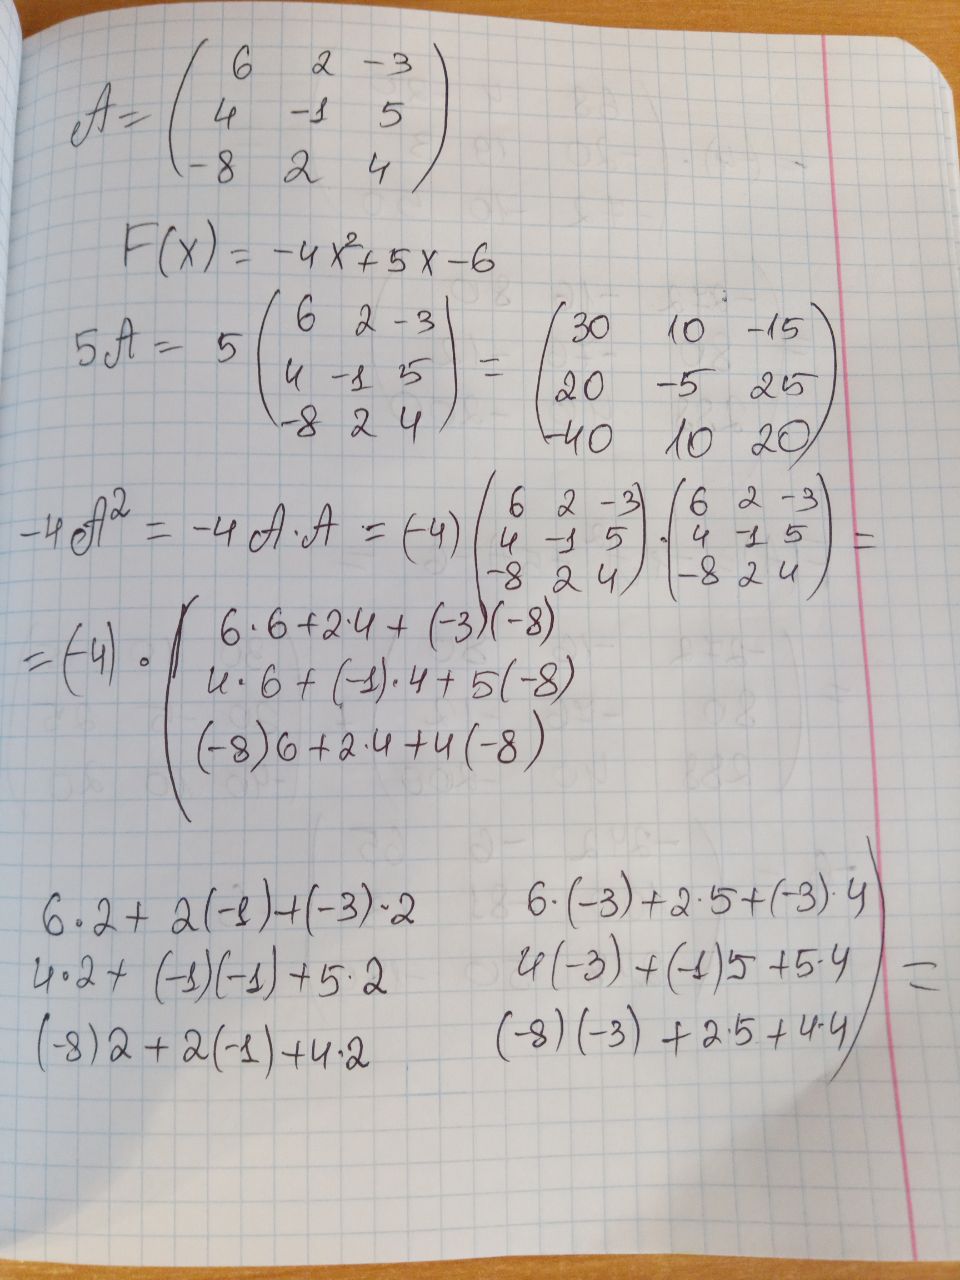 A = ( 6 2 -3
4 -1 5
-8 2 4 )
F(x) = -4x² + 5x - 6
5A = 5 ( 6 2 -3
4 -1 5
-8 2 4 ) = ( 30 10 -15
20 -5 25
-40 10 20 )
-4A² = -4A·A = (-4) ( 6 2 -3
4 -1 5
-8 2 4 ) · ( 6 2 -3
4 -1 5
-8 2 4 ) =
= (-4) · ( 6·6+2·4+(-3)(-8)
4·6+(-1)·4+5(-8)
(-8)6+2·4+4(-8)
6·2+2(-1)+(-3)·2 6·(-3)+2·5+(-3)·4
4·2+(-1)(-1)+5·2 4(-3)+(-1)5+5·4
(-8)2+2(-1)+4·2 (-8)(-3)+2·5+4·4 ) =